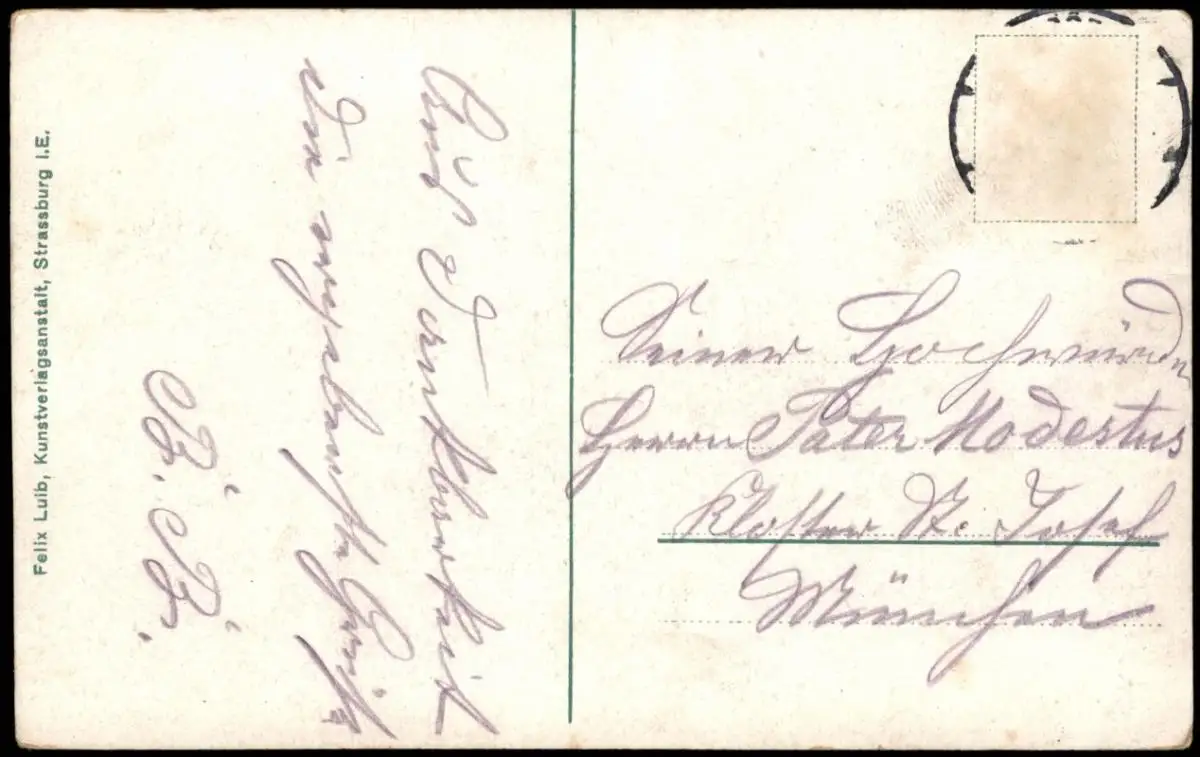 Felix Luib, Kunstverlagsanstalt, Strassburg i.E.
Aus Dankbarkeit
die ergebenste Grüße
B. B.
Seiner Hochwürden
Herrn Pater Modestus
Kloster St. Josef
München